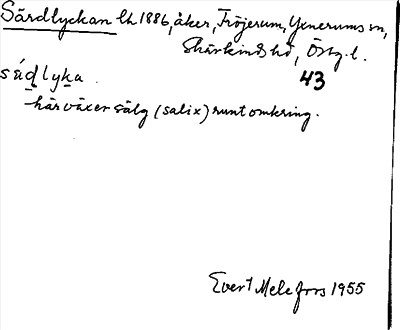 Särdlyckan lh 1886, åker, Fröjerum, Yxnerums sn,
Skärkinds hd, Östg. l.
43
sádlyka
här växer sälg (salix) runt omkring.
Evert Melefors 1955